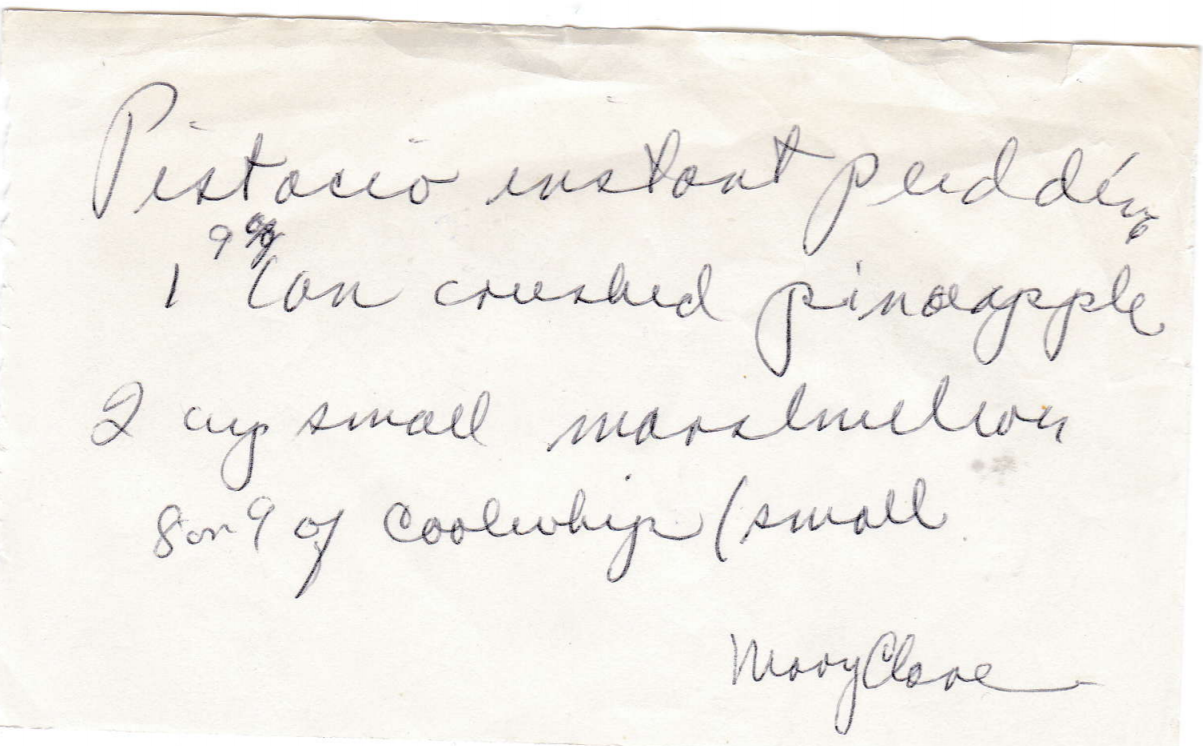 Pistacio instant pudding
9 oz
1 Can crushed pineapple
2 cup small
8 or 9 oz Coolwhip (small
Mary Clare